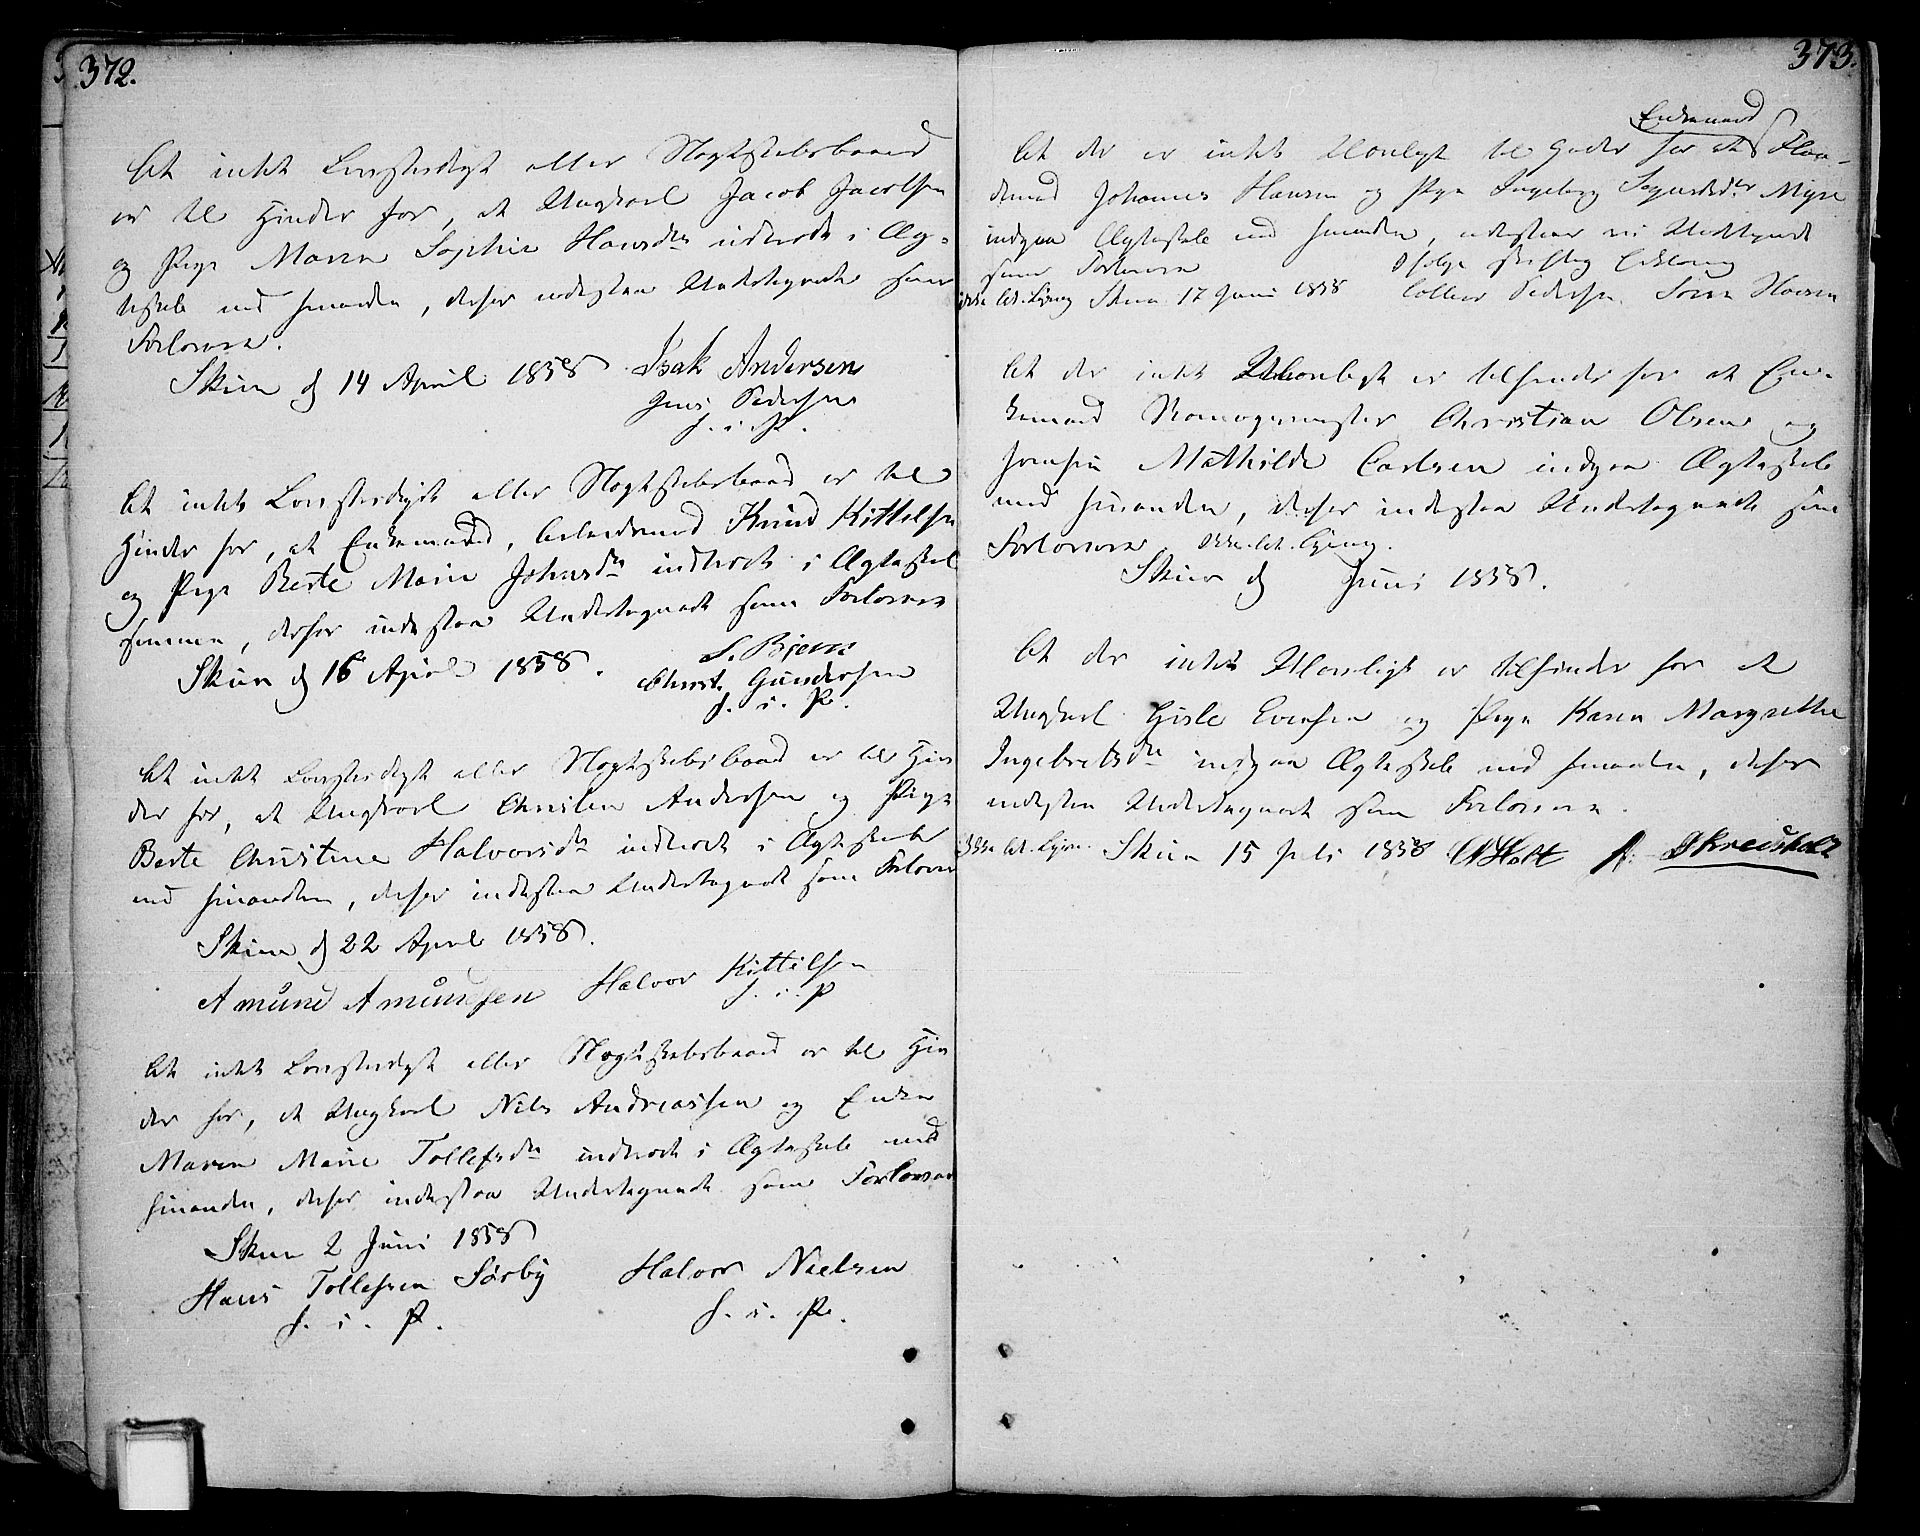 372.
At intet Lovstridigt eller Slægtskabsbaand
er til Hinder for, at Ungkarl Jacob Jacobsen
og Pige Maren Sophie Hansdtr indtræde i Æg-
teskab med hinanden, derfor indestaa Undertegnede som
Forlovere.
Skien d 14 April 1858 Isak Andersen
Jens Pedersen
h. i. P.
At intet Lovstridigt eller Slægtskabsbaand er til
Hinder for, at Enkemand, Arbeidsmand Knud Kittelsen
og Pige Berte Marie Johnsdtr indtræde i Ægteskab
sammen, derfor indestaa Undertegnede som Forlovere
Skien d 16 April 1858. S. Bjerre
Christ. Gundersen
h. i. P.
At intet Lovstridigt eller Slægtskabsbaand er til Hin
der for, at Ungkarl Christen Andersen og Pige
Berte Christine Halvorsdtr indtræde i Ægteskab
med hinanden, derfor indestaa Undertegnede som Forlovere
Skien d 22 April 1858.
Amund Amundsen Halvor Kittilsen
h. i. P
At intet Lovstridigt eller Slægtskabsbaand er til Hin
der for, at Ungkarl Nils Andreassen og Enke
Maren Marie Tollefsdtr indtræde i Ægteskab med
hinanden, derfor indestaa Undertegnede som Forlovere
Skien 2 Juni 1858
Hans Tollefsen Sørby Halvor Nielsen
h. i. P. h. i. P.
373.
Enkemand
At der er intet Ulovligt til Hinder for at
Johannes Hansen og Pige Ingeborg Sigurdsdtr Myre
indgaa Ægteskab med hinanden, indestaar vi Undertegnede
som Forlovere Ifølge skriftlig Erklæring
Skien 17 Juni 1858 Pedersen. Søren Hansen
At der intet Ulovligt er tilhinder for at Enke-
mand Christian Olsen og
Jomfru Mathilde Carlsen indgaa Ægteskab
med hinanden, derfor indestaa Undertegnede som
Forlovere
Skien d Juni 1858.
At der intet Ulovligt er tilhinder for at
Ungkarl Gisle Evensen og Pige Karen Margrethe
Ingebretsdtr indgaa Ægteskab med hinanden, derfor
indestaa Undertegnede som Forlovere.
Skien 15 Juli 1858 Holt